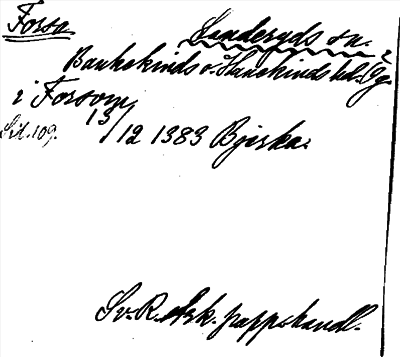 Forsa Landeryds sn.
Bankekinds o. Hanekinds hd. Ög.
i Forsom
Sid. 109. 13/12 1383 Bjärka.
Sv. R. Ark. pappshandl.